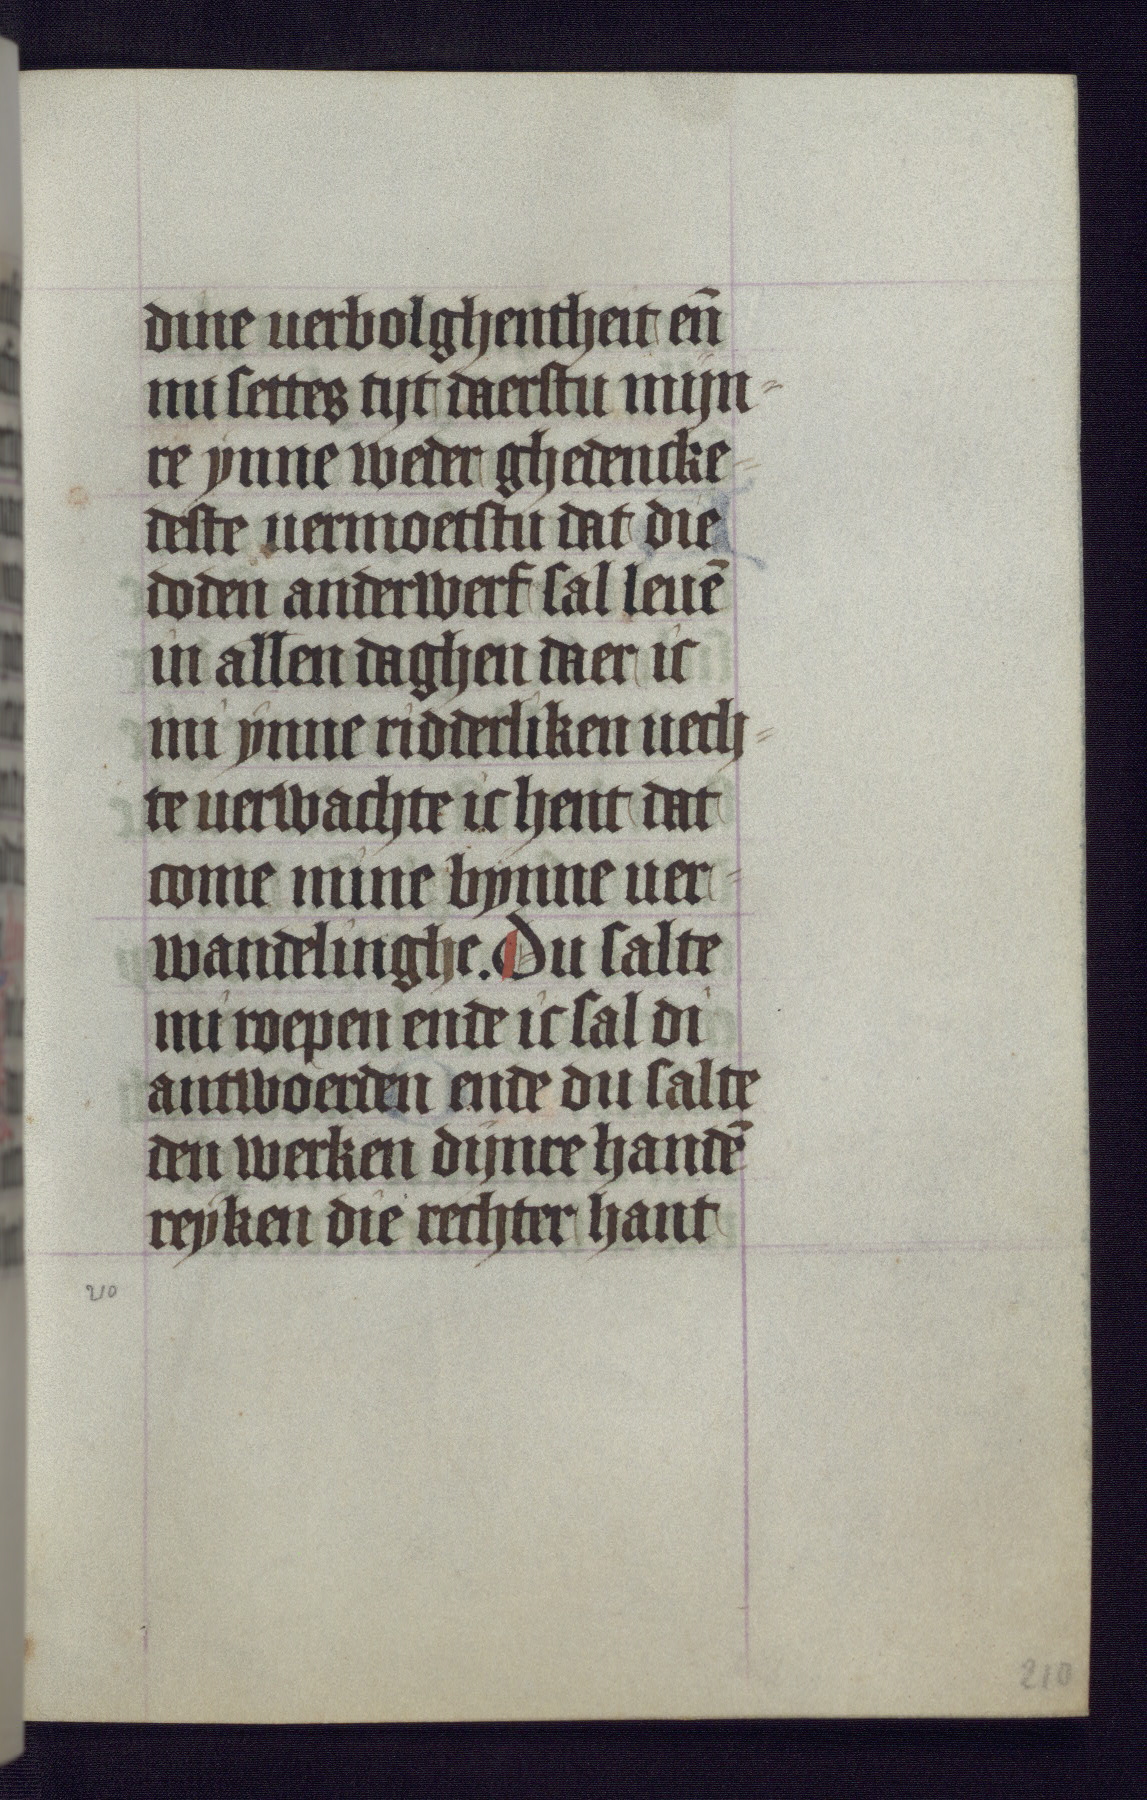 dine verbolghentheit en̄
mi settes tijt daerstu mijn-
re ynne weder ghedencke-
deste vermoetstu dat die
doden anderwerf sal leuē
in allen daghen daer ic
mi ynne ridderliken vech-
te verwachte ic hent dat
come mine bynne ver-
wandelinghe. Du salte
mi roepen ende ic sal di
antwoerden ende du salte
den werken dijnre handē
reyken die rechter hant
210
210